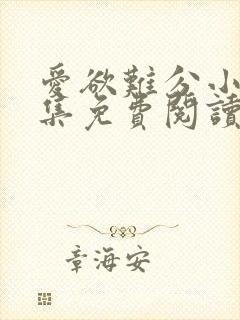 愛欲難分小
集免費閱讀
章海安